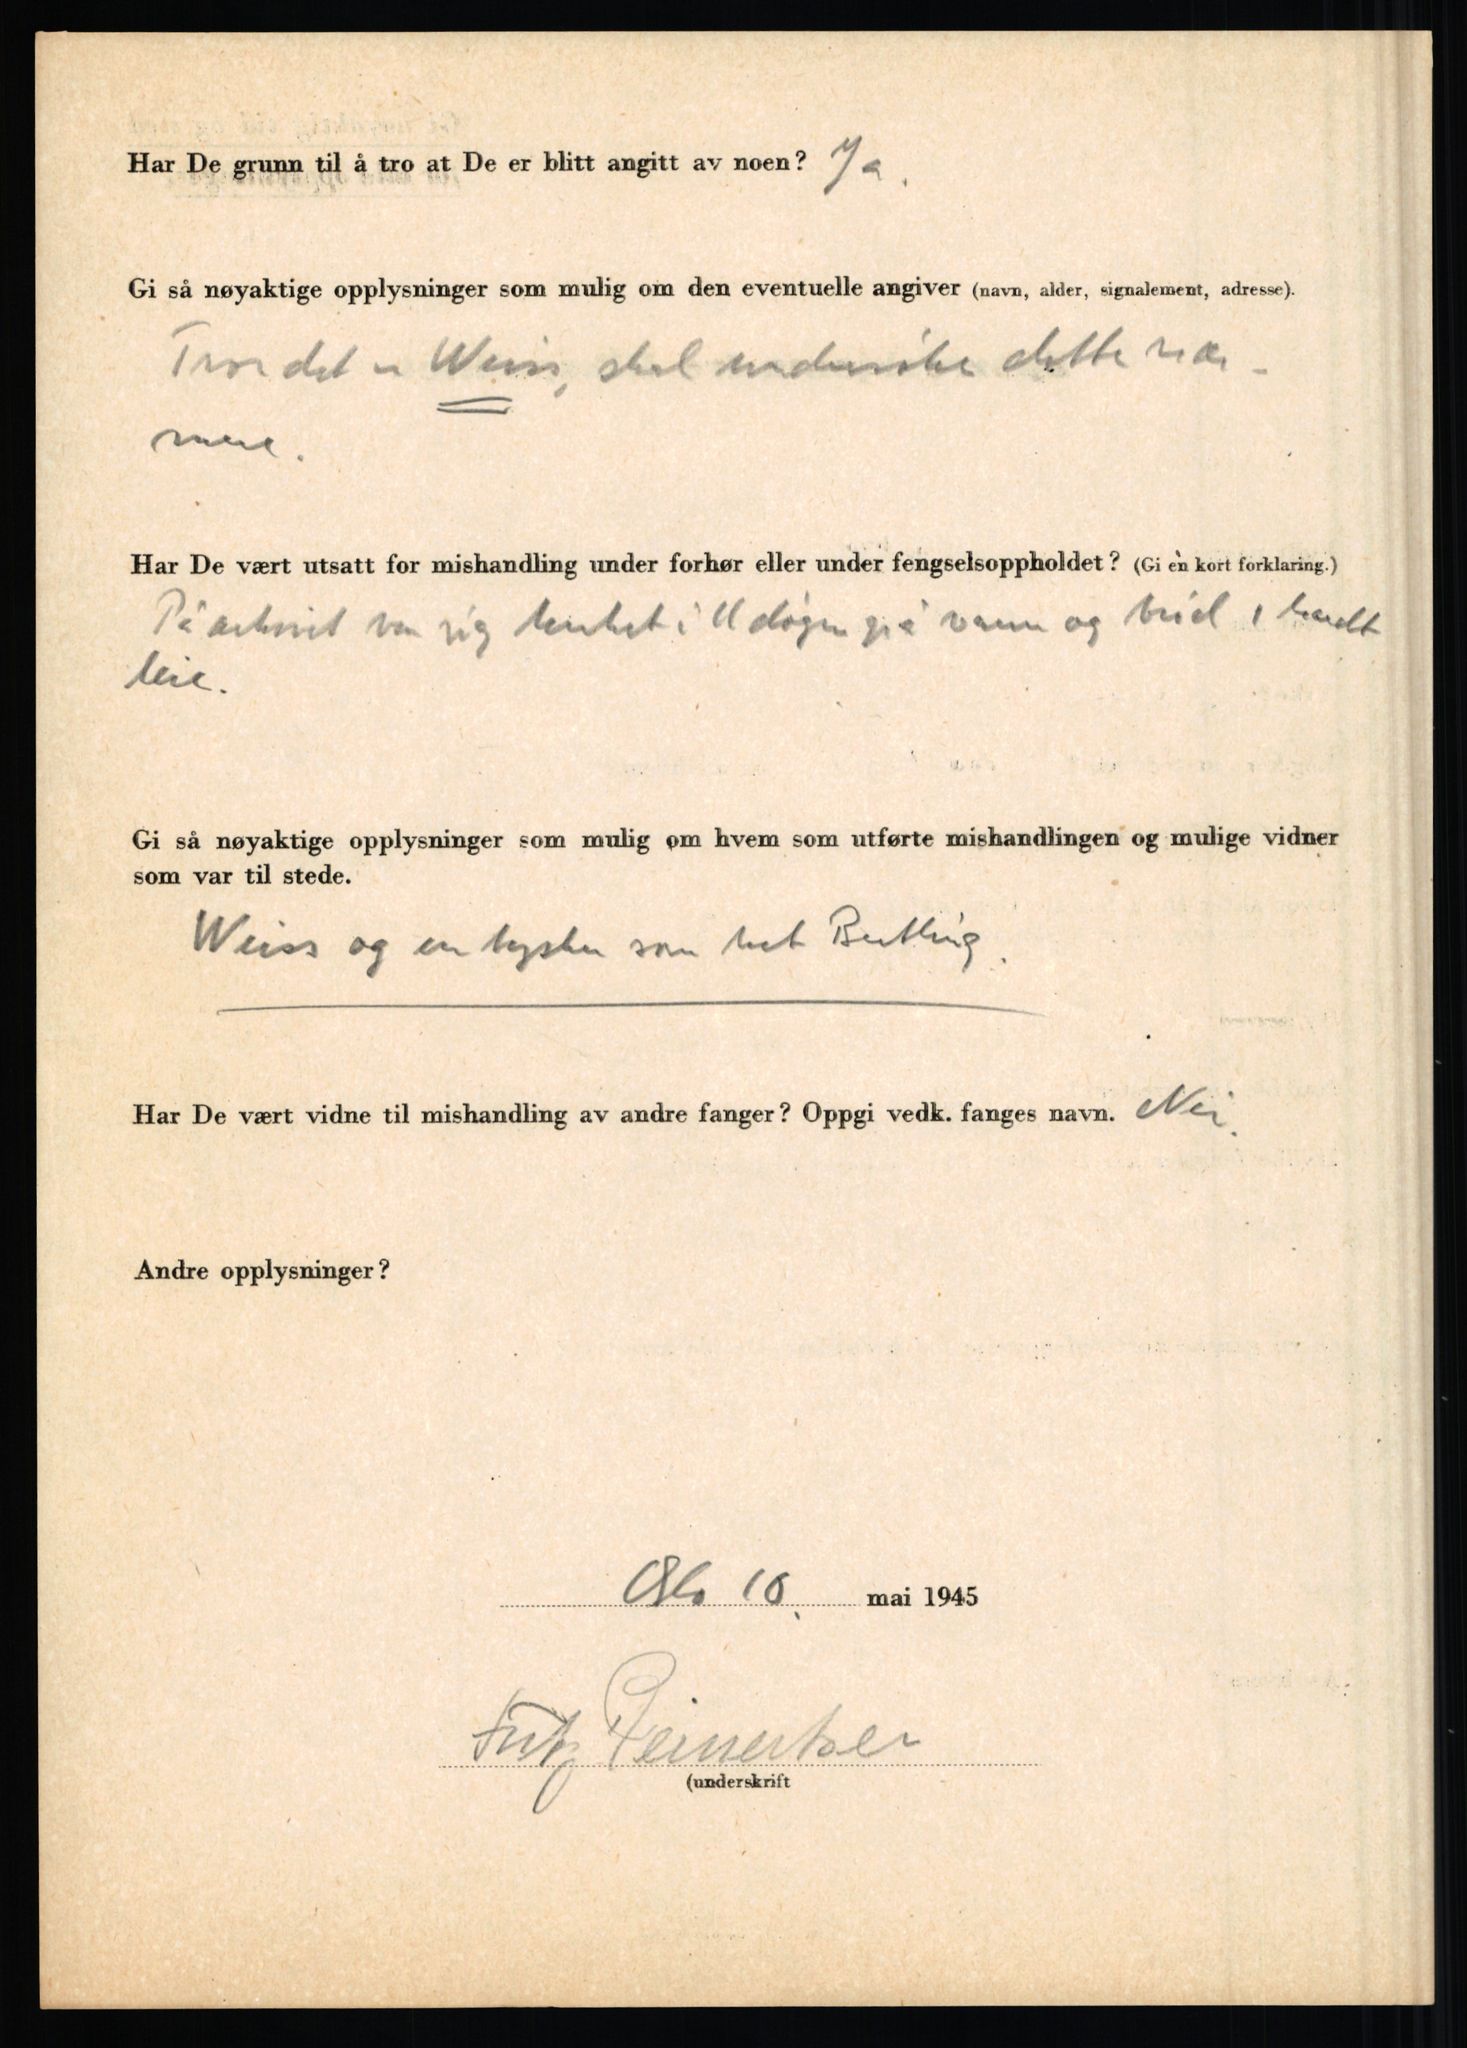 Har De grunn til å tro at De er blitt angitt av noen? Ja.
Gi så nøyaktige opplysninger som mulig om den eventuelle angiver (navn, alder, signalement, adresse).
Tror det er Weiss, skal undersøke dette nær-
mere.
Har De vært utsatt for mishandling under forhør eller under fengselsoppholdet? (Gi en kort forklaring.)
På arkivet var jeg lenket i 11 døgn på vann og brød, hardt
leie.
Gi så nøyaktige opplysninger som mulig om hvem som utførte mishandlingen og mulige vidner
som var til stede.
Weiss og en tysker som het Bertling.
Har De vært vidne til mishandling av andre fanger? Oppgi vedk. fanges navn. Nei.
Andre opplysninger?
Oslo 10. mai 1945
Fritz Reinertsen
(underskrift